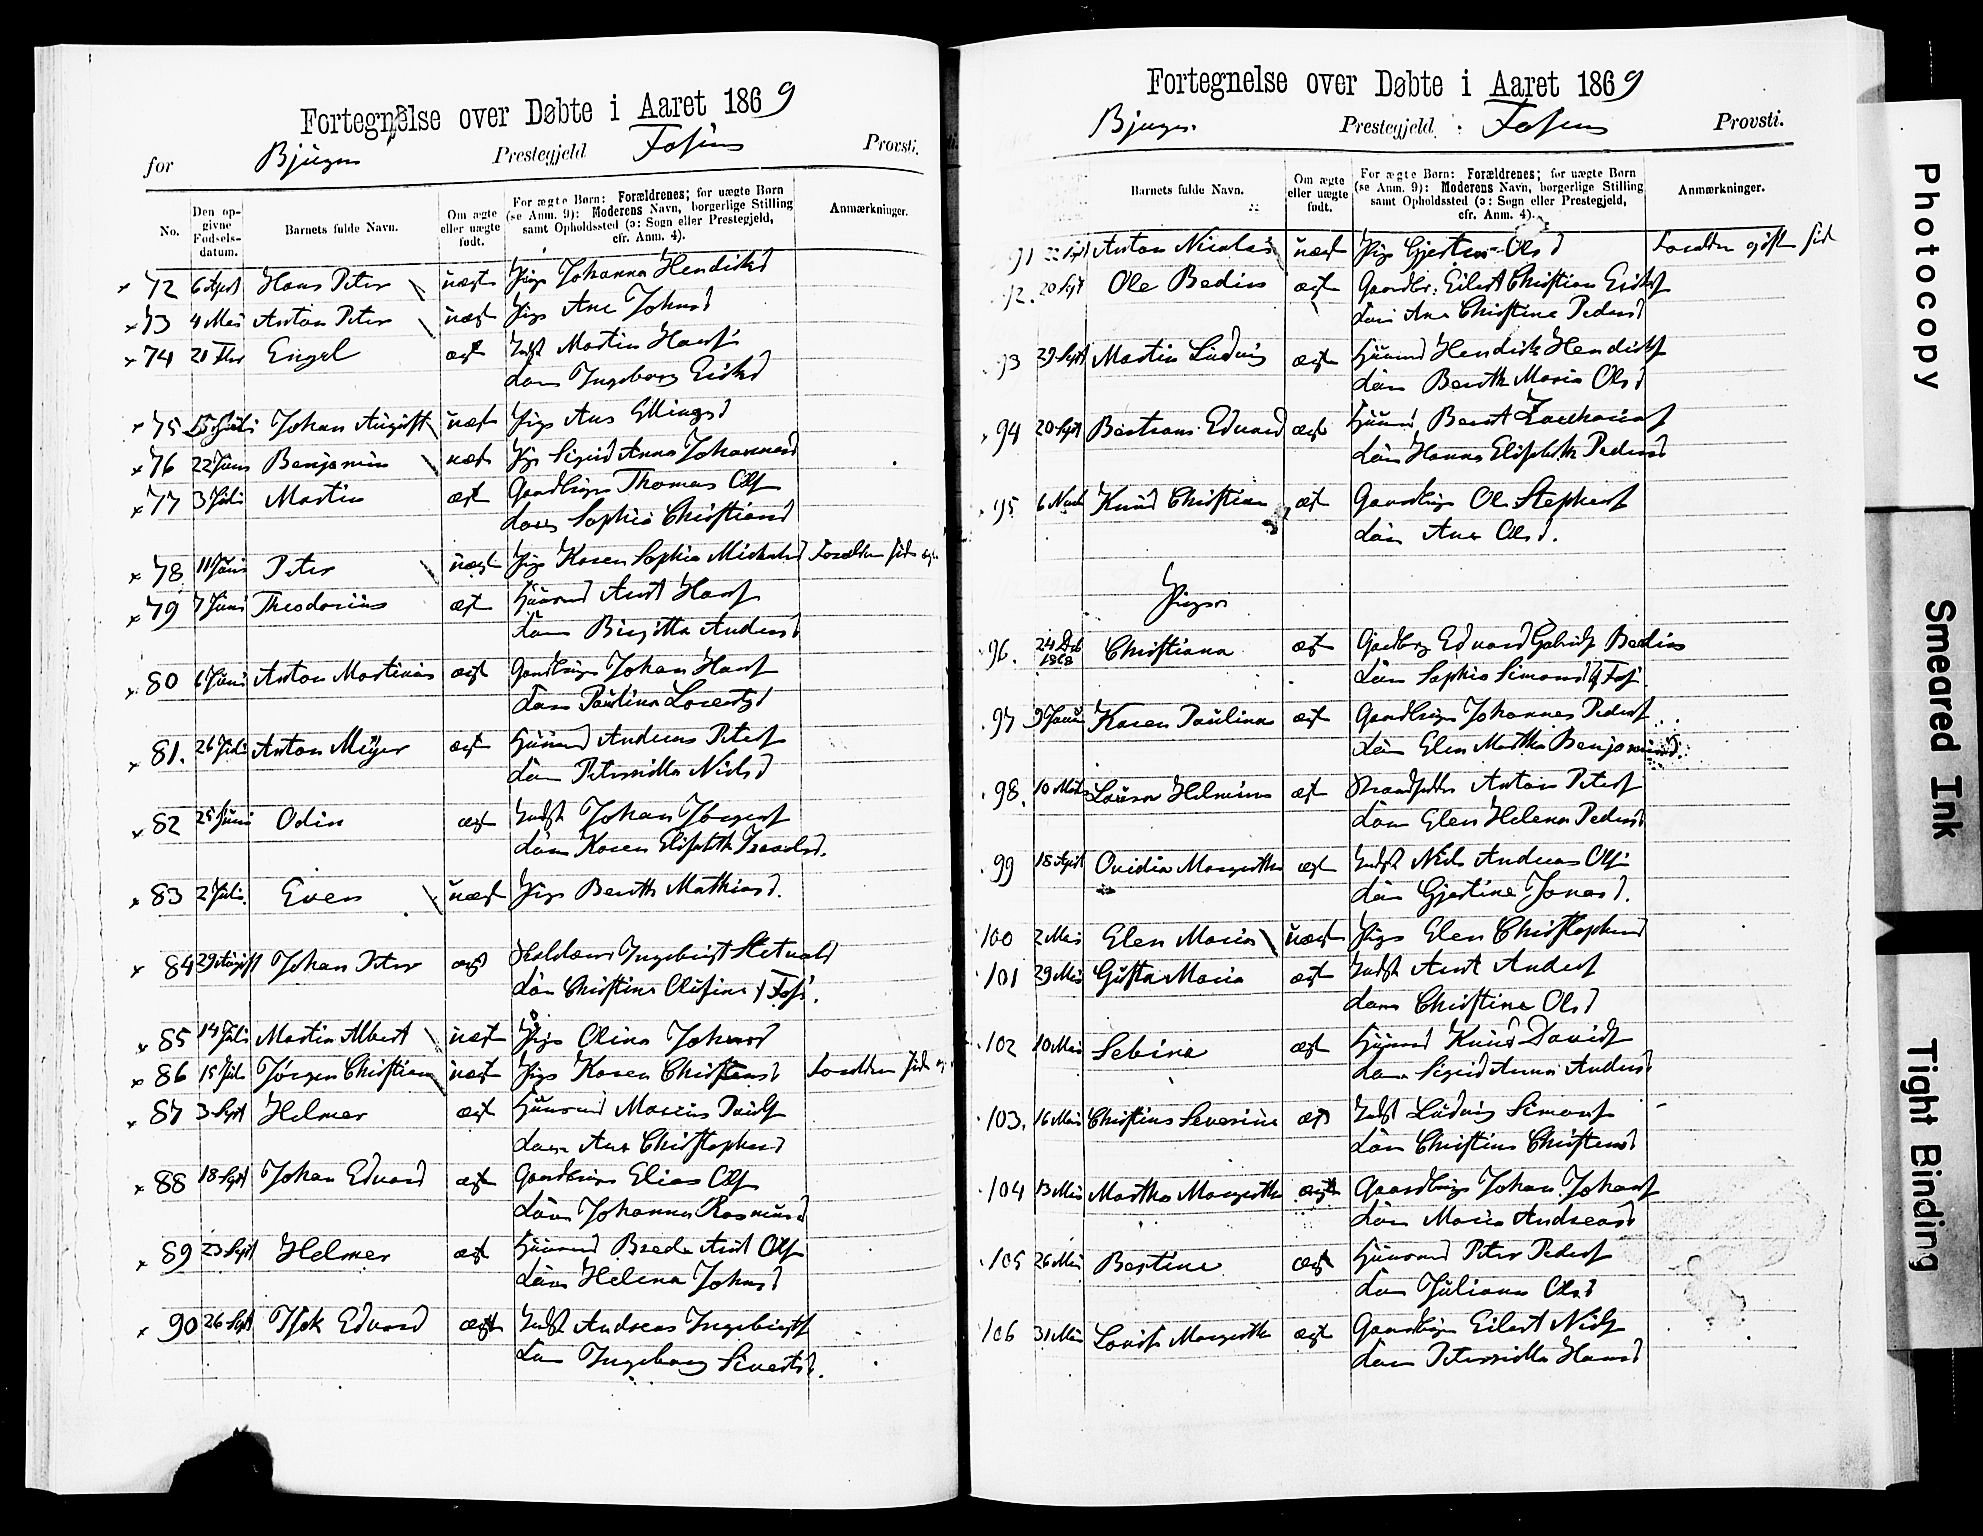 Fortegnelse over Døbte i Aaret 1869
for Bjugn Prestegjeld Fosens Provsti.
No. Den opgivne Fødselsdatum. Barnets fulde Navn. Om ægte eller uægte født. For ægte Børn: Forældrenes; for uægte Børn (se Anm. 9): Moderens Navn, borgerlige Stilling samt Opholdssted (ɔ: Sogn eller Prestegjeld, cfr. Anm. 4). Anmærkninger.
72 6 April Hans Peter uægte Pige Johanna Hendriksd
73 4 Mai Anton Peter uægt Pige Ane Johnsd
74 21 Engel ægt Indst Martin Hansf
Ingeborg Eriksd
75 15 Juli Johan August uægt Pige Ane Ellingsd
76 22 Juni Benjamin uægt Pige Sigrid Anna Johannesd
77 3 Juli Martin ægt Gaardbruger Thomas Olsf
Sophie Christiansd
78 11 Juni Peter uægt Pige Karen Sophie Michelsd
79 7 Juni Theodorius ægt Huusmd Arnt Hansf
Birgitta Andersd
80 6 Juni Anton Martinius ægt Gaardbruger Johan Hansf
Paulina Lorentsd
81. 26 Juli Anton Meyer ægt Huusmd Andreas Petersf
Peternilla Nielsd
82 25 Juni Odin ægt Indst Johan Jørgensf
Karen Elisabeth
83 2 Juli Even uægt Pige Berith Mathiasd.
84 29 August Johan Peter ægt Ingebrigt
Christine Olufine
85 14 Juli Martin Albert uægt Pige Olina Johnsd
86 15 Juli Jørgen Christian uægt Pige Karen Christensd
87 3 Sept Helmer ægt Huusmd Marius
Ane Christophersd
88 18 Sept Johan Edvard ægt Gaardbruger Elias Olsf
Johanna Rasmusd
89 23 Sept Helmer ægt Huusmd Brede Arnt Olsf
Helena Johnsd
90 26 Sept Isak Edvard ægt Indst Andreas Ingebrigtsf
Ingeborg Sivertsd.
Fortegnelse over Døbte i Aaret 1869
Bjugn Prestegjeld Fosens Provsti.
Barnets fulde Navn. Om ægte eller uægte født. For ægte Børn: Forældrenes; for uægte Børn (se Anm. 9): Moderens Navn, borgerlige Stilling samt Opholdssted (ɔ: Sogn eller Prestegjeld, cfr. Anm. 4). Anmærkninger.
91 22 Sept Anton Nicolai uægt Pige Gjertine Olsd
92. 20 Sept Ole Bedin ægt Gaardbr: Eilert Christian Eriksf
Ane Christine Pedersd
93 29 Sept Martin Ludvig ægt Huusmd Hendrik Hendriksf
Berith Maria Olsd
94 20 Sept Edvard ægt Huusmd Bernt Zachariasf
Hanna Elisabeth Pedersd
95 6 Knud Christian ægt Gaardbruger Ole Stephensf
Ane Olsd.
Piger
96. 24 Dcb 1868 Christiana ægt Gaardbrg Edvard
Sophie Simonsd
97 9 Karen Paulina ægt Gaardbruger Johannes Pedersf
Elen Martha Benjaminsd.
98. 10 Lovisa ægt Anton Petersf
Elen Helena Pedersd
99 18 April Ovidia Margrethe ægt Indst Niels Andreas Olsf
Gjertine Jonasd.
100 2 Mai Elen Maria uægt Pige Elen Christophersd
101 29 Mai Gusta Maria ægt Indst Arnt Andersf
Christine Olsd
102 10 Mai Sebine ægt Huusmd Knud Davidsf
Sigrid Anna Andersd
103. 16 Mai Christine Severine ægt Indst Ludvig Simonsf
Christine Christensd
104 13 Mai Martha Margrethe ægt Gaardbruger Johan Johansf
Maria Andreasd
105 26 Mai Bertine ægt Huusmd Peter Pedersf
Juliana Olsd
106 31 Mai Lovise Margrethe ægt Gaardbruger Eilert Nielsf
Peternilla Hansd
Photocopy
Smeared Ink
Tight Binding